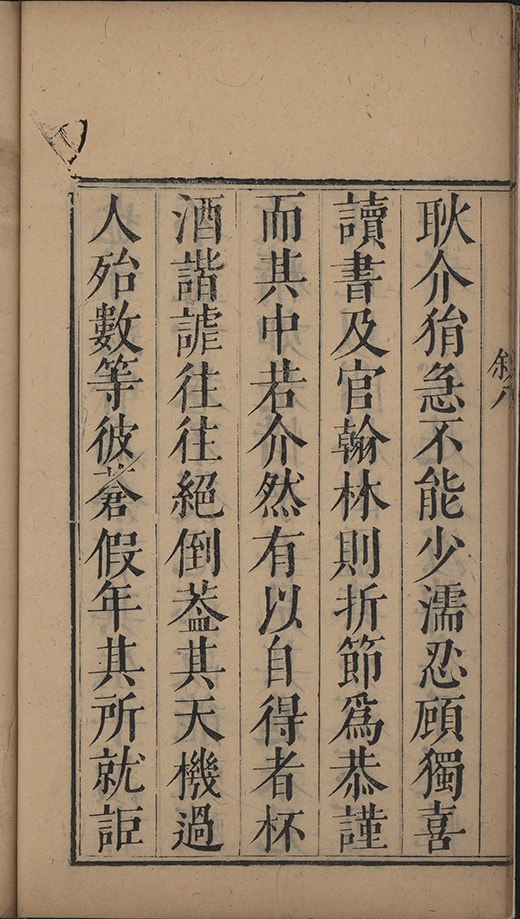 耿介狷急不能少濡忍顧獨喜
讀書及官翰林則折節爲恭謹
而其中若介然有以自得者杯
酒諧謔往往絕倒葢其天機過
人殆數等彼蒼假年其所就詎